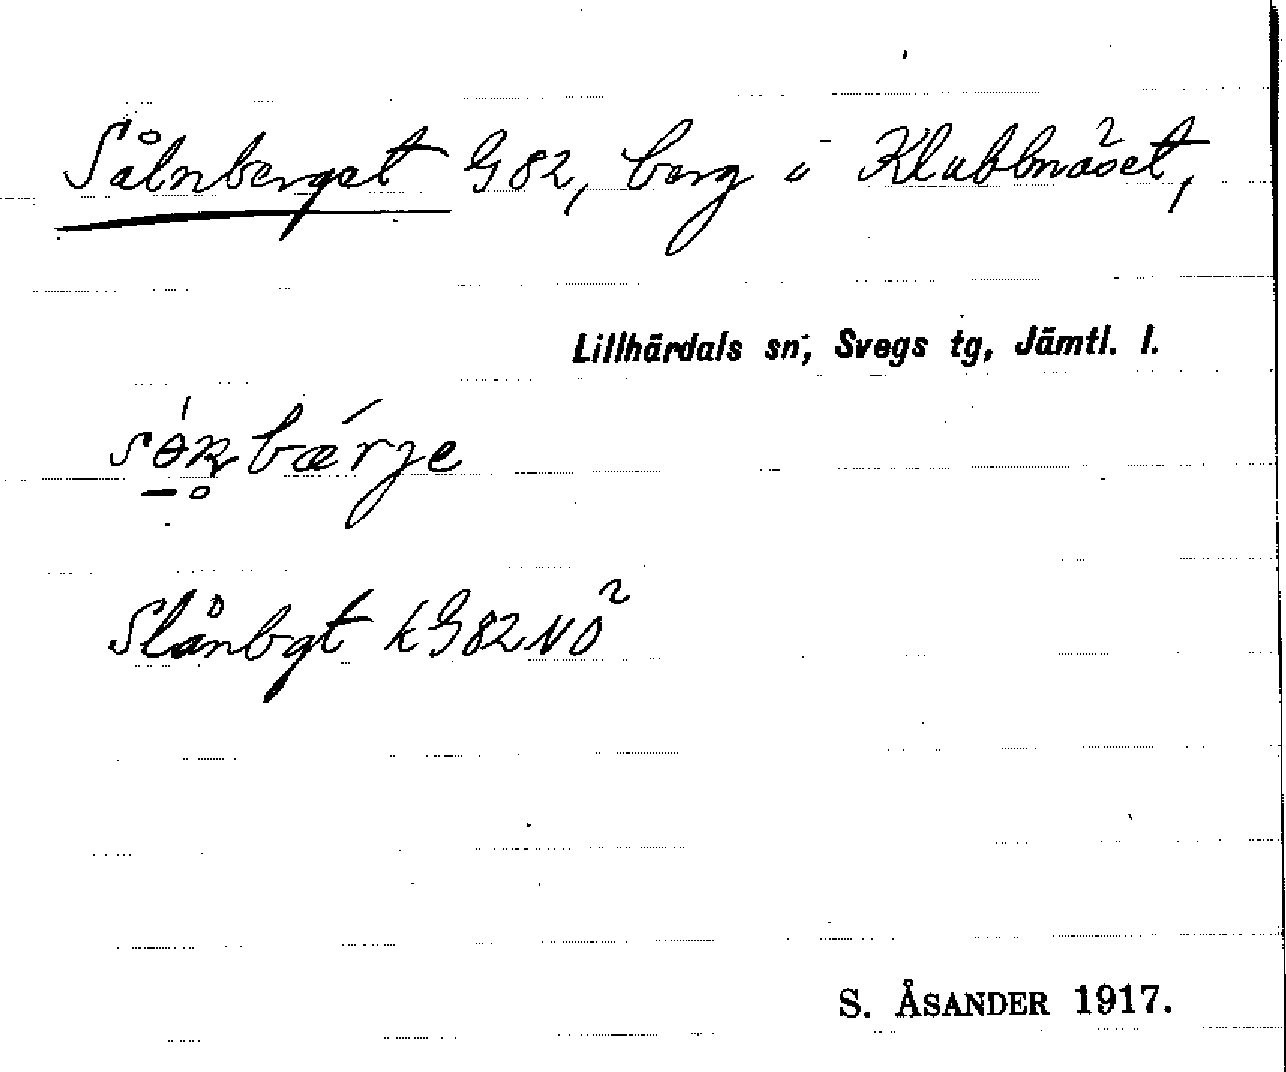 Sålnberget G82, berg i Klubbnäset,
Lillhärdals sn, Svegs tg, Jämtl. l.
bærje
Slånbgt kG82NO
S. ÅSANDER 1917.